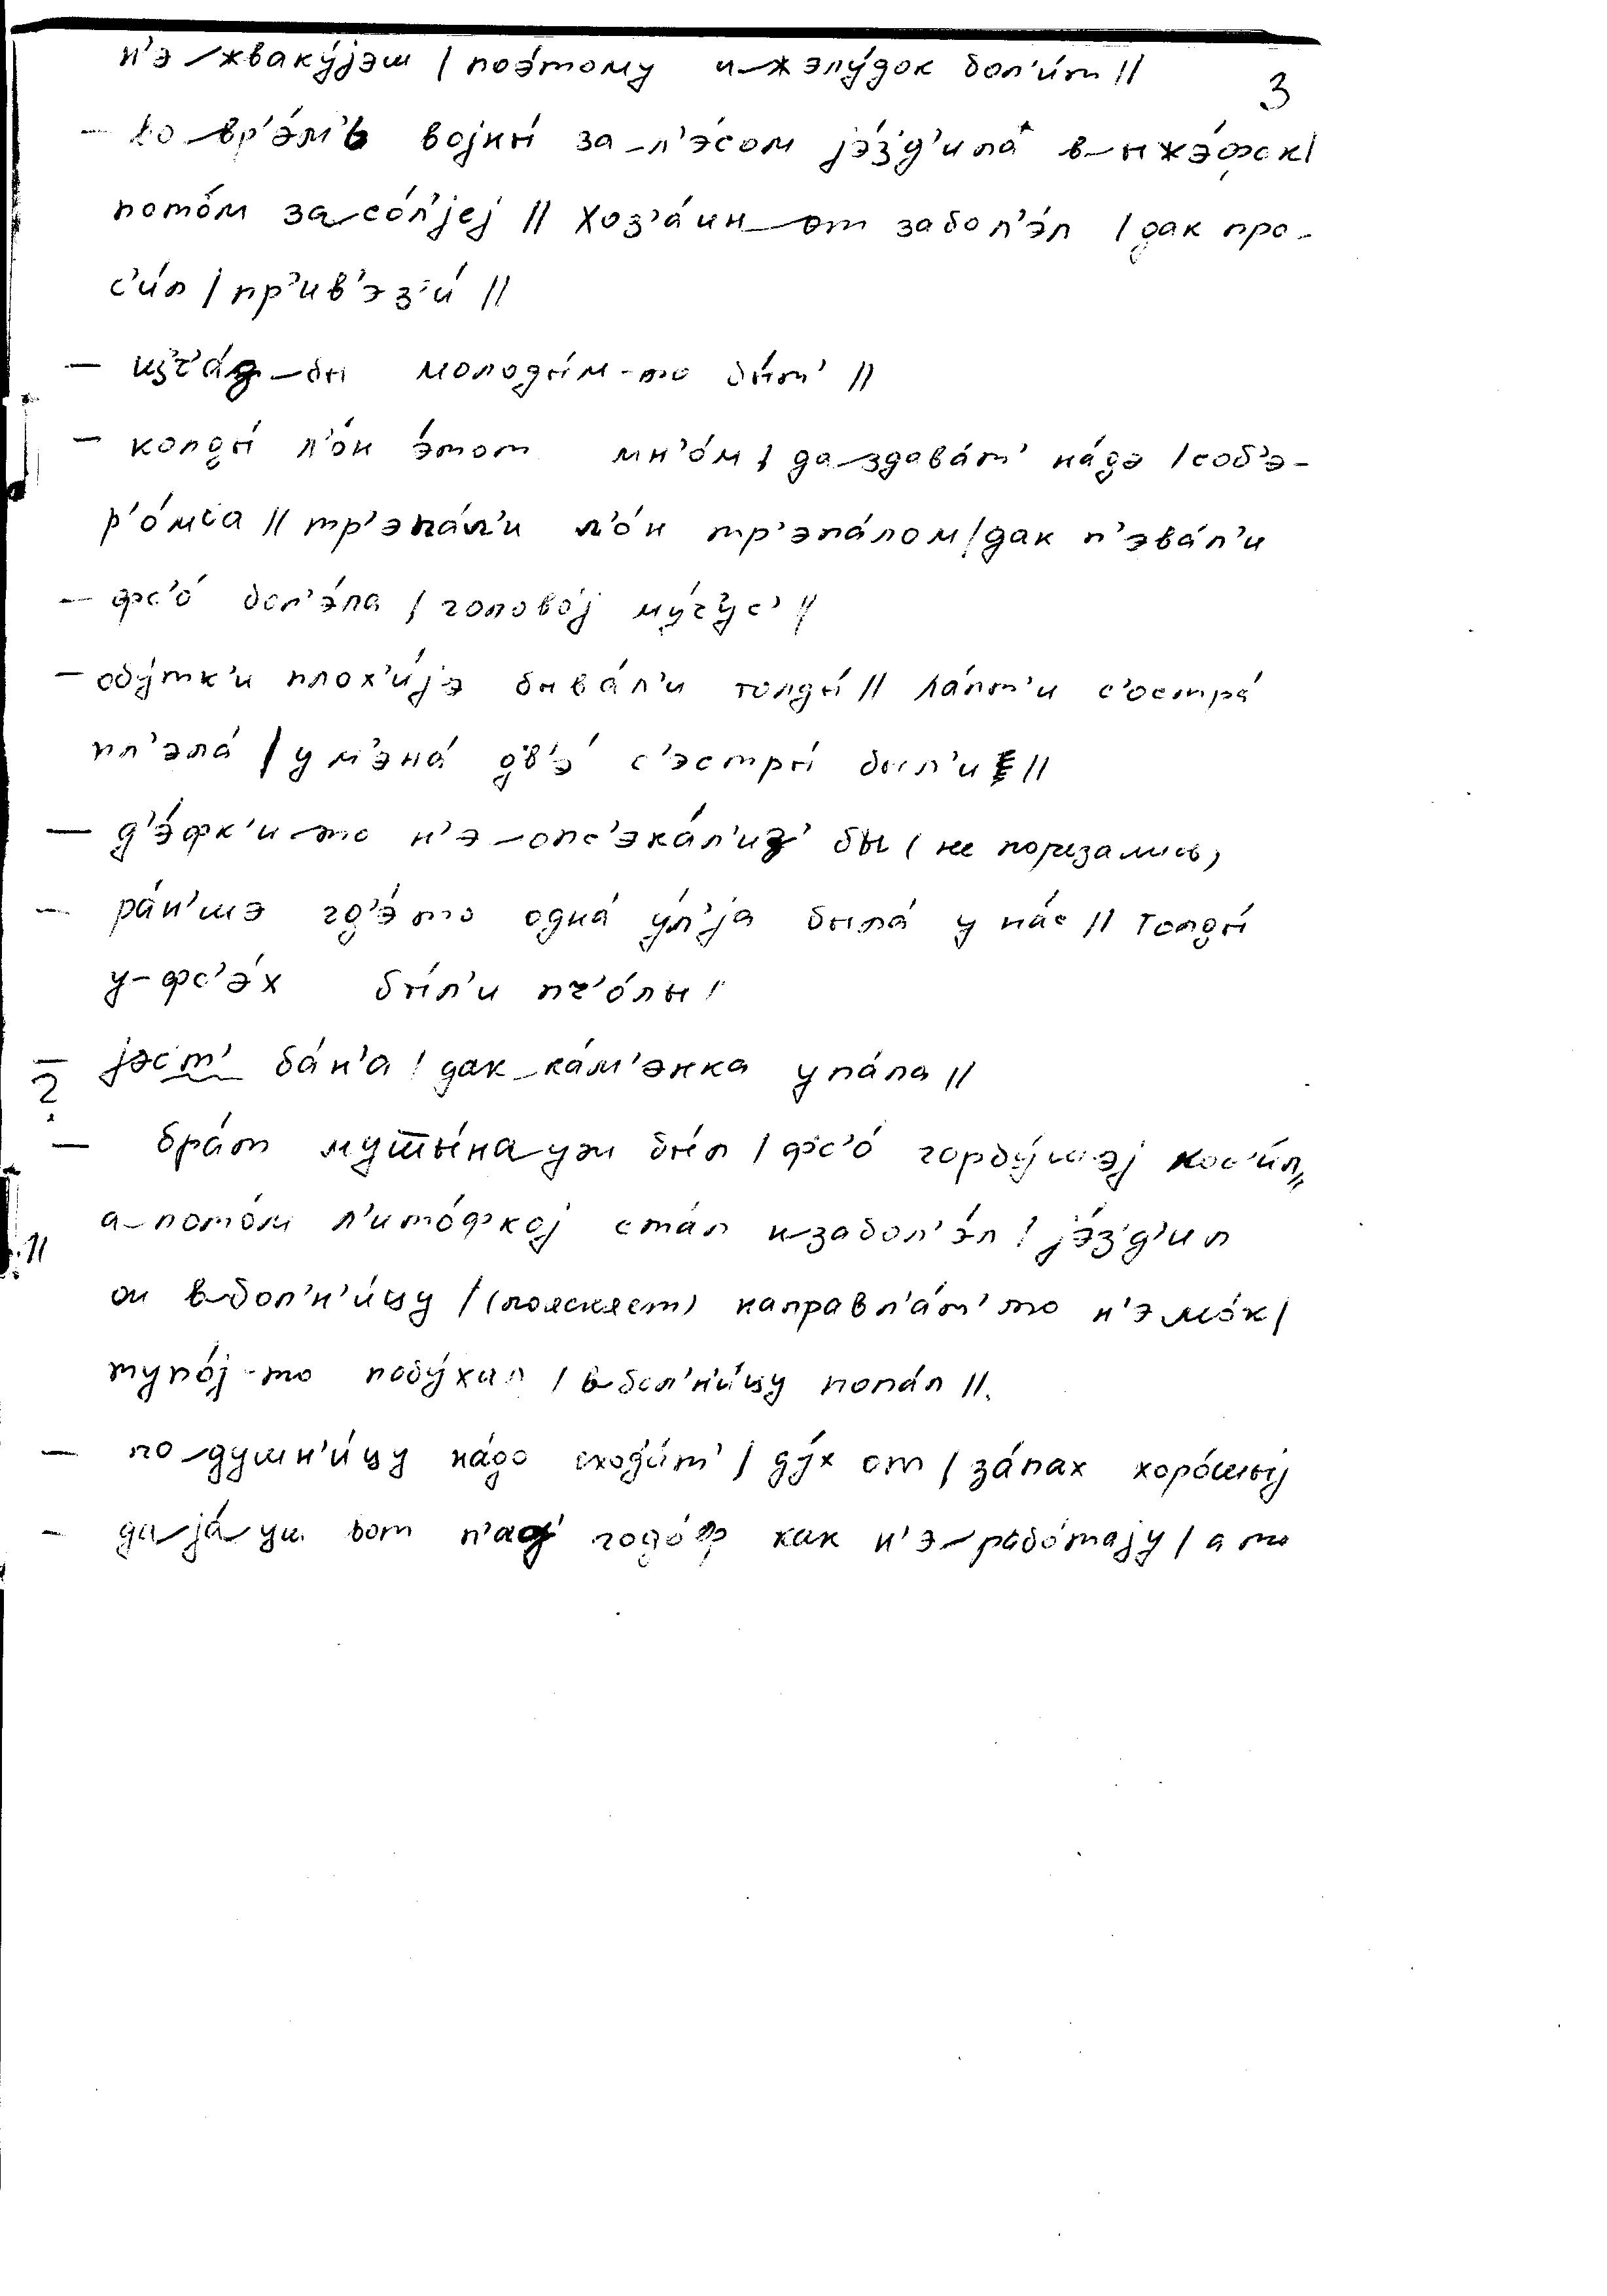 н'э жваку́јэш / поэ́тому и жэлу́док бол'и́т //
3
— во вр'э́м'ь војны́ за л'э́сом јэ́з'д'ила в ыжэ́фск /
пото́м за со́л'јеј // хоз'а́ин от забол'э́л / дак про-
с'и́л / пр'ив'эз'и́ //
— бы молоды́м-то бы́т' //
— колды́ л'о́н э́тот мн'о́м / да здава́т' на́дэ / соб'э-
р'о́мса // тр'эпа́л'и л'о́н тр'эпа́лом / дак п'эва́л'и
— фс'о́ бол'э́ла / голово́ј му́ч'ус' //
— обу́тк'и плох'и́јэ быва́л'и толды́ // ла́пт'и с'остра́
пл'эла́ / у м'эна́ дв'э́ с'эстры́ был'и //
— д'э́фк'и то н'э опс'эка́л'из' бы (не порезались)
— ра́н'шэ гд'э́ то одна́ у́л'ја была́ у на́с // толды́
у-фс'э́х бы́л'и пч'о́лы /
— јэст' ба́н'а / дак ка́м'энка упа́ла //
?
— бра́т мушты́на уж бы́л / фс'о́ горбу́шэј кос'и́л //
а пото́м л'ито́фкој ста́л и забол'э́л / јэ́з'д'ил
он в бол'н'и́цу / (поясняет) направл'а́т' то н'э мо́к /
тупо́ј-то побу́хал / в бол'н'и́цу попа́л //.
— по душн'и́цу на́до сход'и́т' / ду́х от / за́пах хоро́шыј
— да ја́ уш вот п'ад' годо́ф как н'э рабо́тају / а то